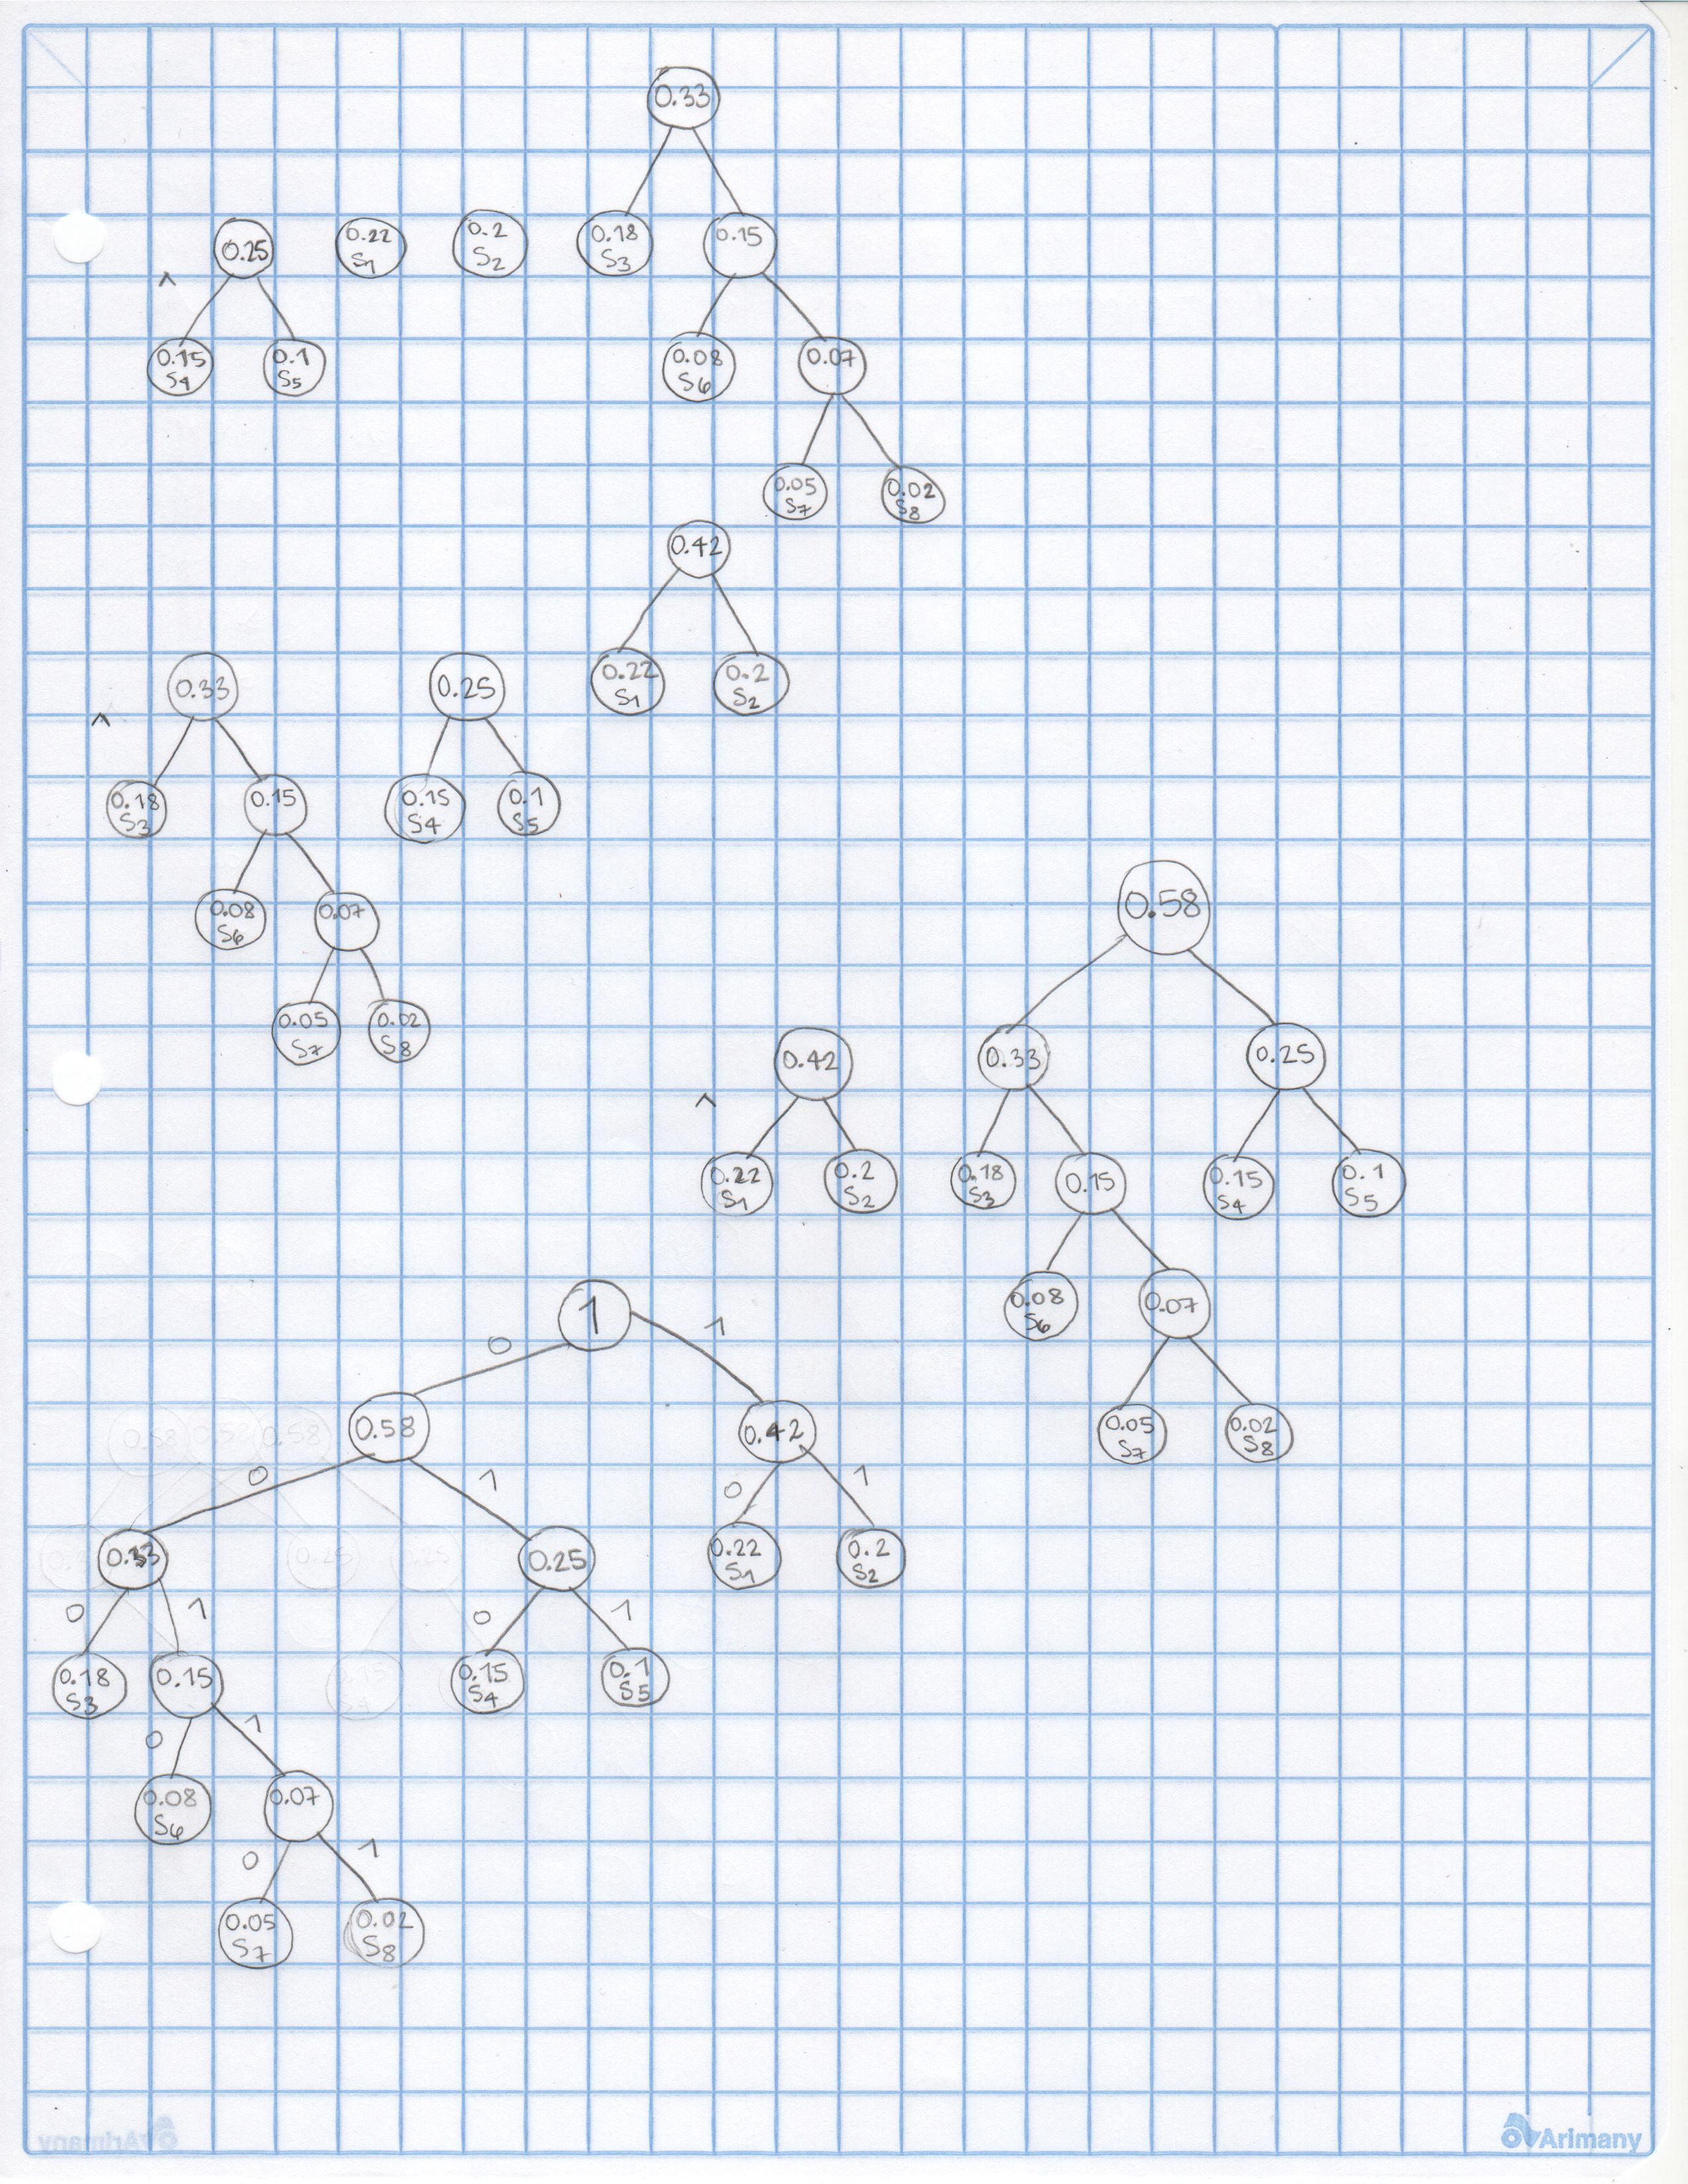 0.33
0.25 0.22 S1 0.2 S2 0.18 S3 0.15
^
0.15 S4 0.1 S5 0.08 S6 0.07
0.05 S7 0.02 S8
0.42
0.33 0.25 0.22 S1 0.2 S2
^
0.18 S3 0.15 0.15 S4 0.1 S5
0.08 S6 0.07
0.05 S7 0.02 S8
0.58
0.42 0.33 0.25
^
0.22 S1 0.2 S2 0.18 S3 0.15 0.15 S4 0.1 S5
0.08 S6 0.07
0.05 S7 0.02 S8
1
0 1
0.58 0.42
0 1 0 1
0.33 0.25 0.22 S1 0.2 S2
0 1 0 1
0.18 S3 0.15 0.15 S4 0.1 S5
0 1
0.08 S6 0.07
0 1
0.05 S7 0.02 S8
Arimany